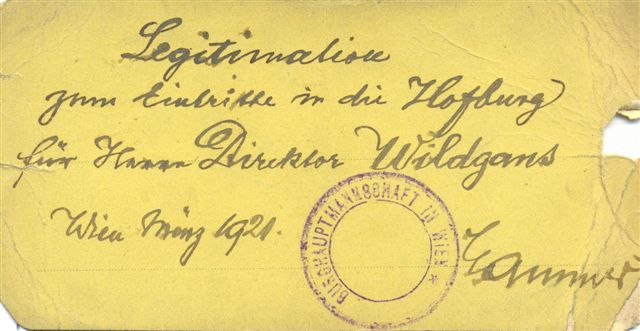 Legitimation
zum Eintritte in die Hofburg
für Herrn Direktor Wildgans
Wien März 1921.
BURGHAUPTMANNSCHAFT IN WIEN *